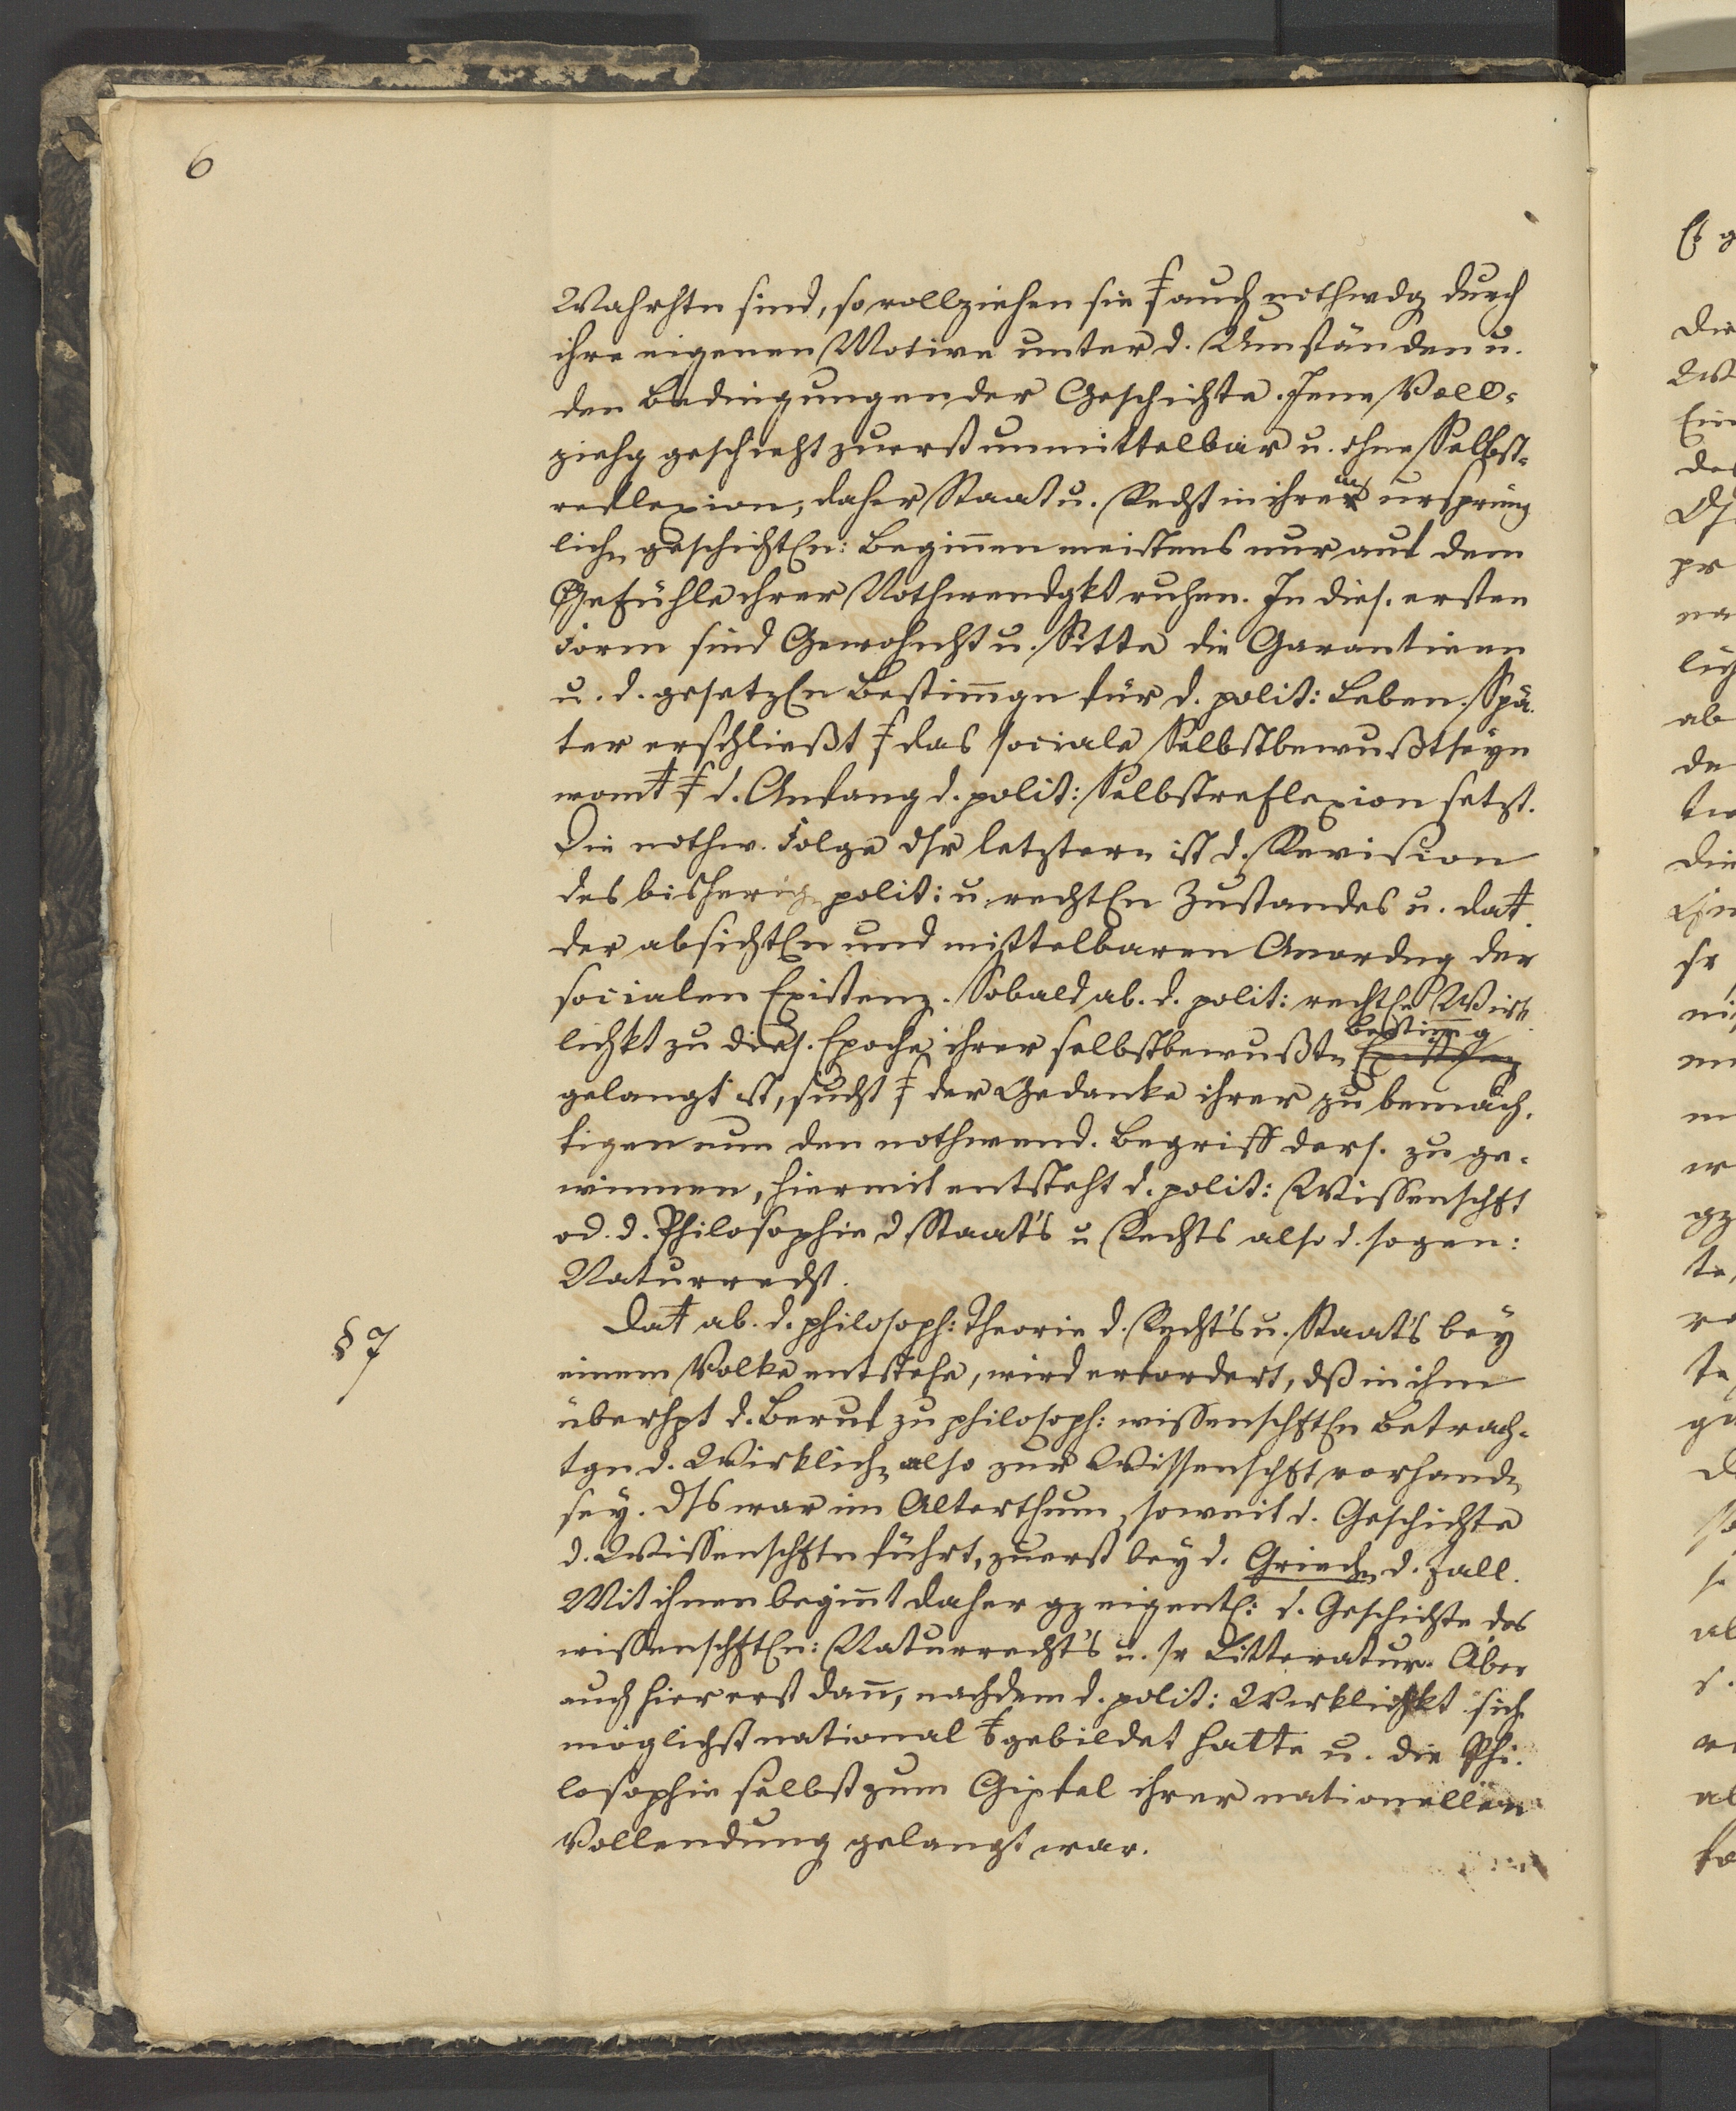 6
Wahrhtn sind, so vollziehen sie ⨍ auch nothwdg durch
ihre eigenen Motive unter d. Umständen u.
den Bedingungen der Geschichte. Jene Voll-
ziehg geschieht zuerst unmittelbar u. ohne Selbst-
reflexion, daher Staat u. Recht in ihrem ursprüng
lichn geschichtln: Beginnen meistens nur auf dem
Gefühle ihrer Nothwendgkt ruhen. In dies. ersten
Form sind Gewohnht u. Sitte die Garantieen
u. d. gesetzln Bestimmgn für d. polit: Leben. Spä-
ter erschließt ⨍ das sociale Selbstbewußtseyn
womt ⨍ d. Anfang d. polit: Selbstreflexion setzt.
Die nothw. Folge dsr letztern ist d. Revision
des bisherign polit: u. rechtln Zustandes u. dat
der absichtln und mittelbaren Anordng der
socialen Existenz. Sobald ab. d. polit: rechtle Wirk-
bestimmg
lichkt zu dies. Epoche ihrer selbstbewußtn Existenz
gelangt ist, sucht ⨍ der Gedanke ihrer zu bemäch-
tigen um den nothwend. Begriff ders. zu ge-
winnen, hiermit entsteht d. polit: Wissenschft
od. d. Philosophie d Staat's u Rechts also d. sogen:
Naturrecht.
§ 7
Dat ab. d. philosoph: Theorie d. Recht's u. Staat's bey
einem Volke entstehe, wird erfordert, dß in ihm
überhpt d. Beruf zu philosoph: wissenschftln Betrach-
tgn d. Wirklichn also zur Wissenschft vorhandn
sey. Dss war im Alterthum, soweit d. Geschichte
d. Wissenschftn führt, zuerst bey d. Griechn d. Fall.
Mit ihnen beginnt daher gz eigentl: d. Geschichte des
wissenschftln: Naturrecht's u. sr Litteratur. Aber
auch hier erst dann, nachdem d. polit: Wirklichkt sich
möglichst national gebildet hatte u. die Phi-
losophie selbst zum Gipfel ihrer nationellen
Vollendung gelangt war.